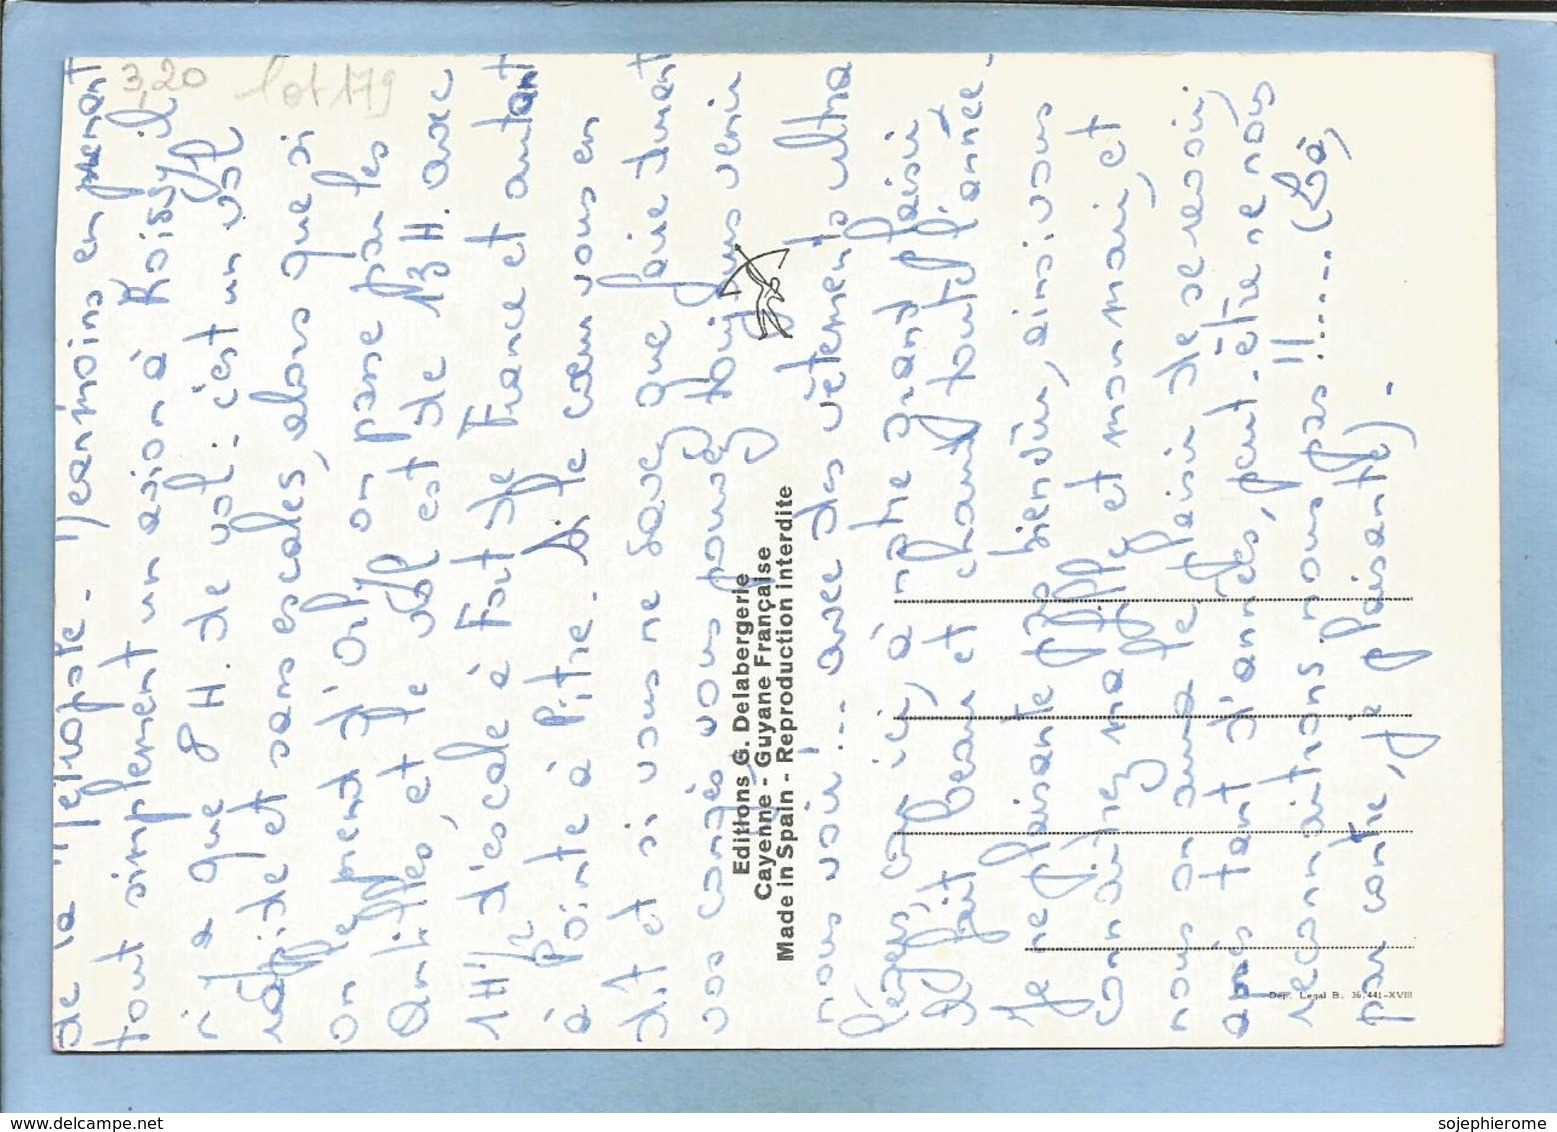 de la Métropole. Néanmoins en prenant
tout simplement un avion à Roissy il
n'a que 8 H. de vol : c'est un vol
rapide et sans escales, alors que si
on le prend d'Orly on passe par les
Antilles et le vol est de 13 H. avec
1H 1/2 d'escale à Fort de France et autant
à Pointe à Pitre. Si le cœur vous en
dit et si vous ne savez que faire durant
vos congés vous pouvez toujours venir
nous voir!... avec des vêtements ultra
légers, car ici, à notre grand plaisir
il fait beau et chaud toute l'année.
Je ne plaisante pas bien sûr, ainsi vous
connaîtrez ma fille et mon mari, et
nous on aura le plaisir de se revoir,
après tant d'années, peut-être ne nous
reconnaitrons-nous pas!!..... (Là,
par contre, je plaisante).
3,20 lot 179
Editions G. Delabergerie
Cayenne - Guyane Française
Made in Spain - Reproduction interdite
Dep. Legal B. 36.441-XVIII
www.delcampe.net
sojephierome